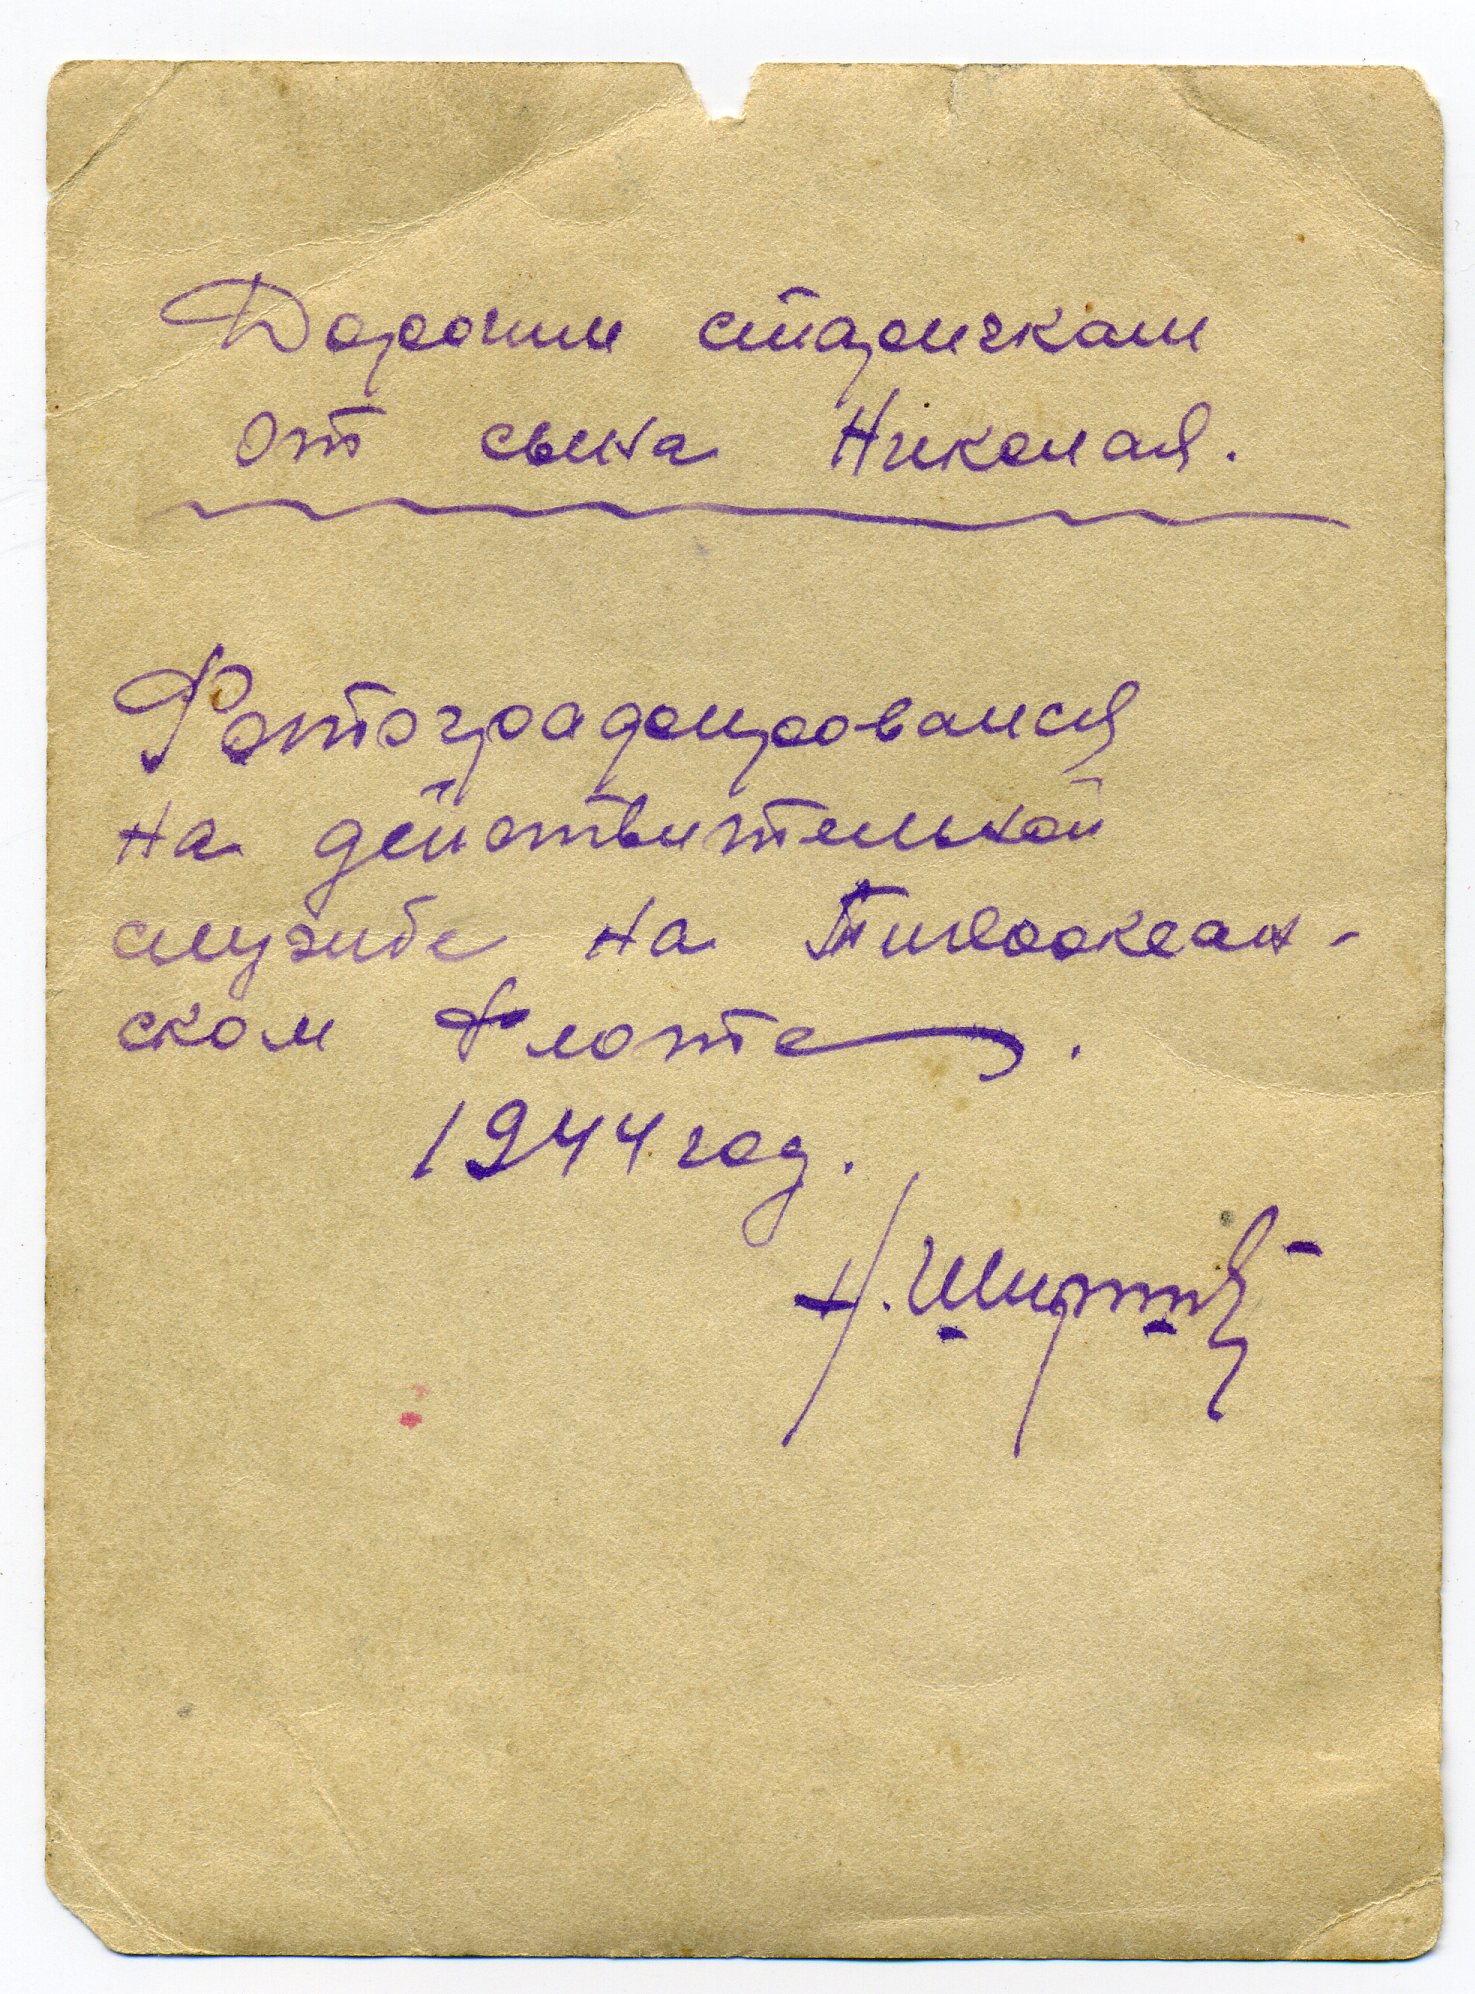 Дорогим старичкам
от сына Николая.
Фотографировался
на действительной
службе на Тихоокеан-
ском флоте.
1944 год.
Н.